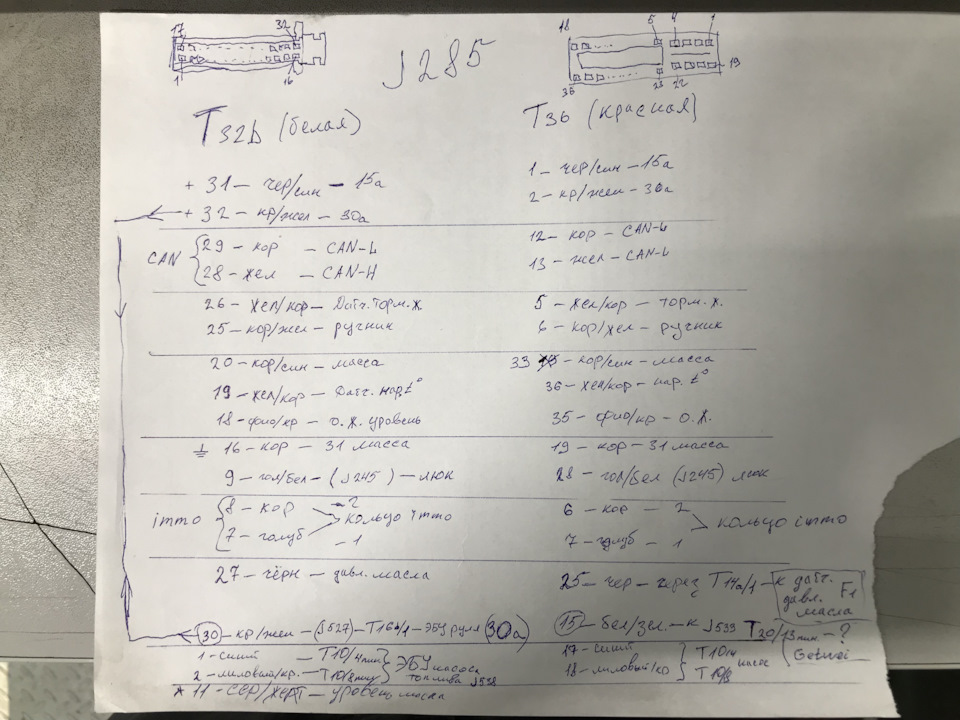 17 32 18 5 4 1
J285
1 16 36 23 22 19
T32b (белая) T36 (красная)
+ 31 – чер/син – 15а 1 – чер/син – 15а
+ 32 – кр/жел – 30а 2 – кр/жел – 30а
CAN { 29 – кор – CAN-L 12 – кор – CAN-L
28 – жел – CAN-H 13 – жел – CAN-L
26 – жел/кор – Датч. торм. ж 5 – жел/кор – торм. ж.
25 – кор/жел – ручник 6 – кор/жел – ручник
20 – кор/син – масса 33 – кор/син – масса
19 – жел/кор – Датч. нар. t° 36 – жел/кор – нар. t°
18 – фио/кр – о.ж. уровень 35 – фио/кр – о.ж.
16 – кор – 31 масса 19 – кор – 31 масса
9 – гол/бел – (J245) – люк 28 – гол/бел (J245) люк
immo { 8 – кор – 2 6 – кор – 2
кольцо immo кольцо immo
7 – голуб – 1 7 – голуб – 1
27 – чёрн – давл. масла 25 – чер – через T14a/1 – к датч. давл. F1 масла
30 – кр/жел – (J527) – T16a/1 – ЭБУ руля (30а) 15 – бел/зел. – к J533 T20/13 пин. – ?
1 – синий – T10/4 пин } ЭБУ насоса 17 – синий } T10/4 насос Getwei
2 – лиловый/кр. – T10/8 пин топлива J538 18 – лиловый/кр T10/8
* 11 – сер/черт – уровень масла